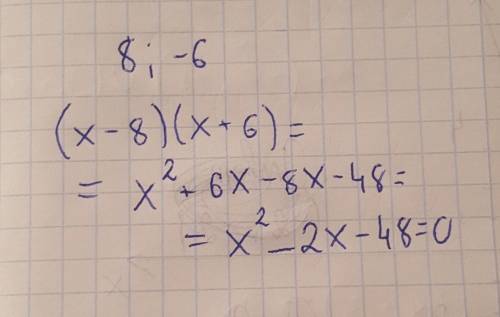 8; -6
(x - 8)(x + 6) =
= x² + 6x - 8x - 48 =
= x² - 2x - 48 = 0